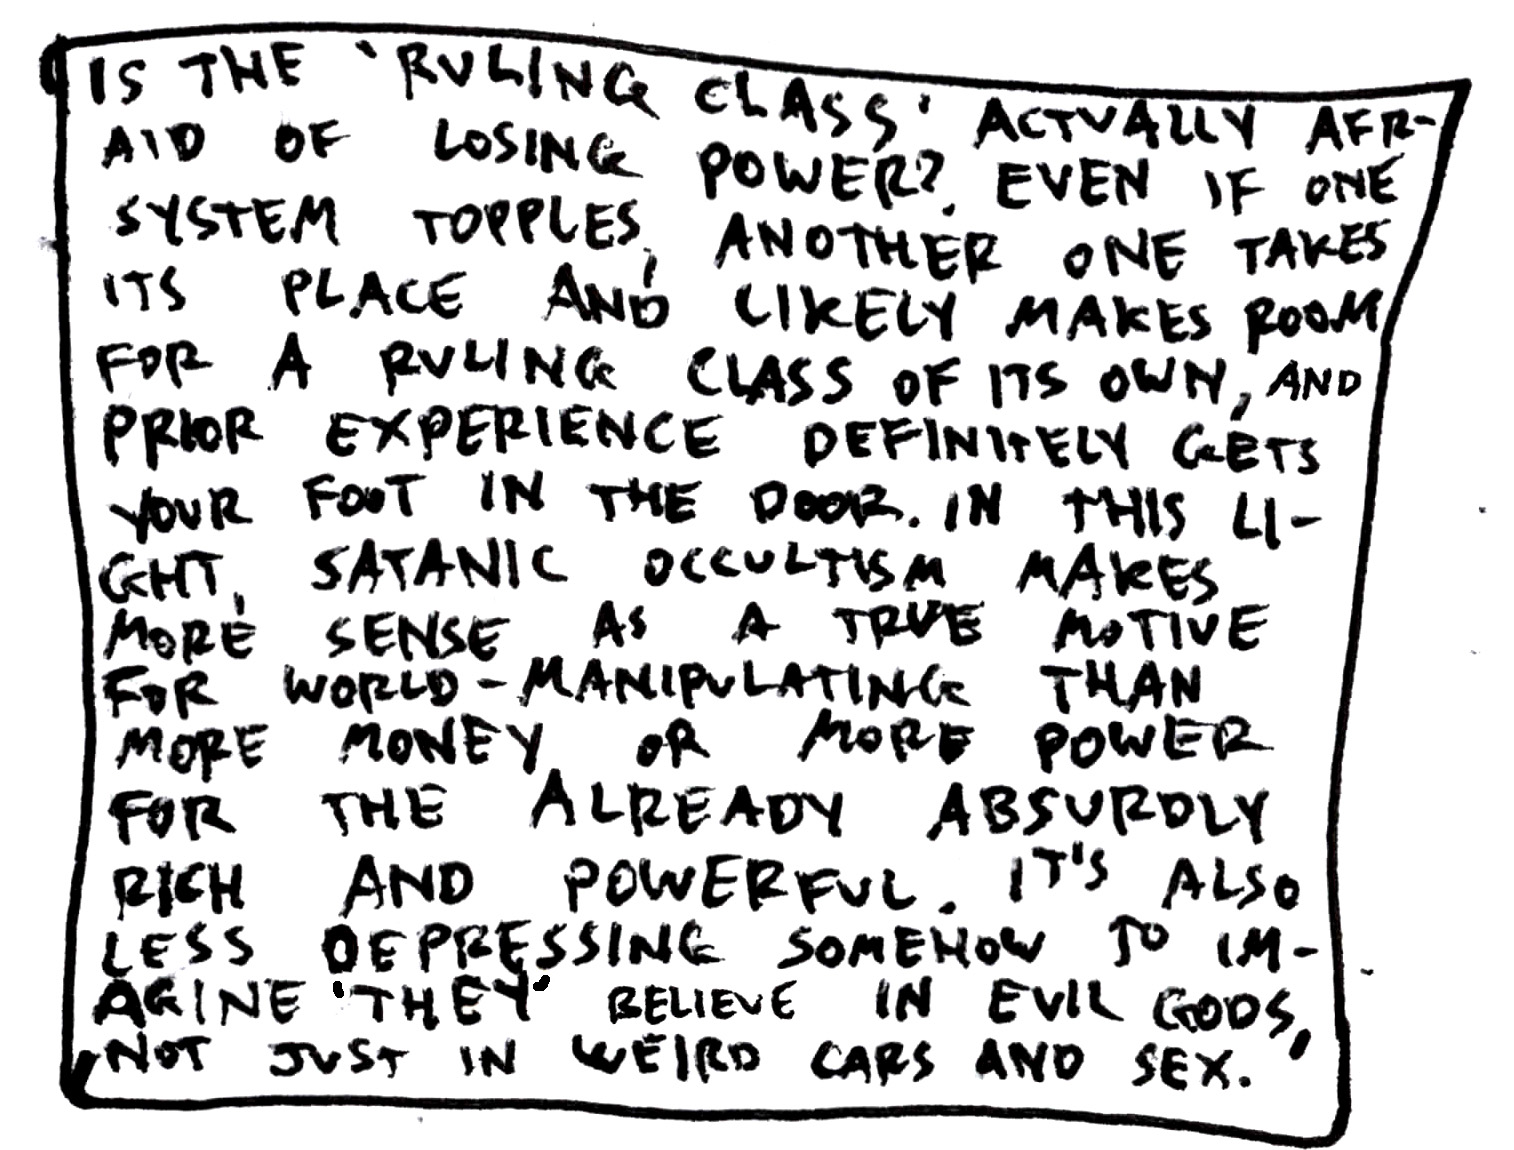 IS THE 'RULING CLASS' ACTUALLY AFR-
AID OF LOSING POWER? EVEN IF ONE
SYSTEM TOPPLES, ANOTHER ONE TAKES
ITS PLACE AND LIKELY MAKES ROOM
FOR A RULING CLASS OF ITS OWN, AND
PRIOR EXPERIENCE DEFINITELY GETS
YOUR FOOT IN THE DOOR. IN THIS LI-
GHT, SATANIC OCCULTISM MAKES
MORE SENSE AS A TRUE MOTIVE
FOR WORLD-MANIPULATING THAN
MORE MONEY OR MORE POWER
FOR THE ALREADY ABSURDLY
RICH AND POWERFUL. IT'S ALSO
LESS DEPRESSING SOMEHOW TO IM-
AGINE "THEY" BELIEVE IN EVIL GODS,
NOT JUST IN WEIRD CARS AND SEX.